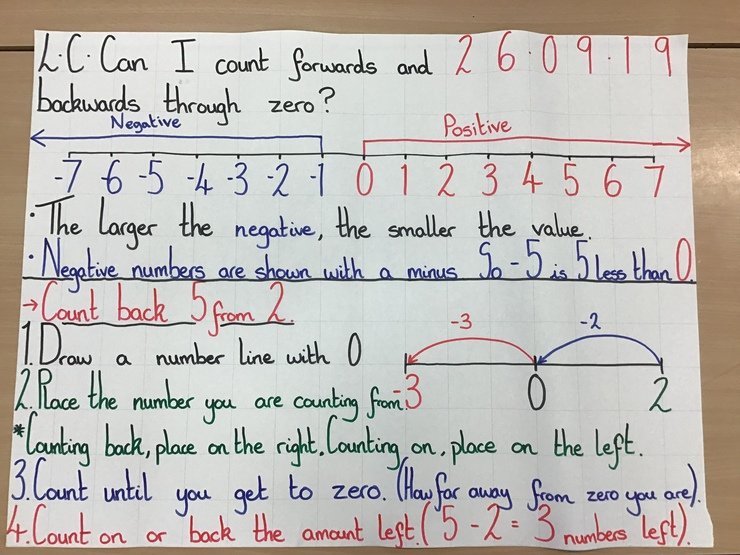 L·C· Can I count forwards and 26·09·19
backwards through zero?
Negative Positive
-7 -6 -5 -4 -3 -2 -1 0 1 2 3 4 5 6 7
· The larger the negative, the smaller the value.
· Negative numbers are shown with a minus So -5 is 5 less than 0.
→ Count back 5 from 2.
-3 -2
1. Draw a number line with 0
-3 0 2
2. Place the number you are counting from.
*Counting back, place on the right. Counting on, place on the left.
3. Count until you get to zero. (How far away from zero you are).
4. Count on or back the amount left. (5-2=3 numbers left).